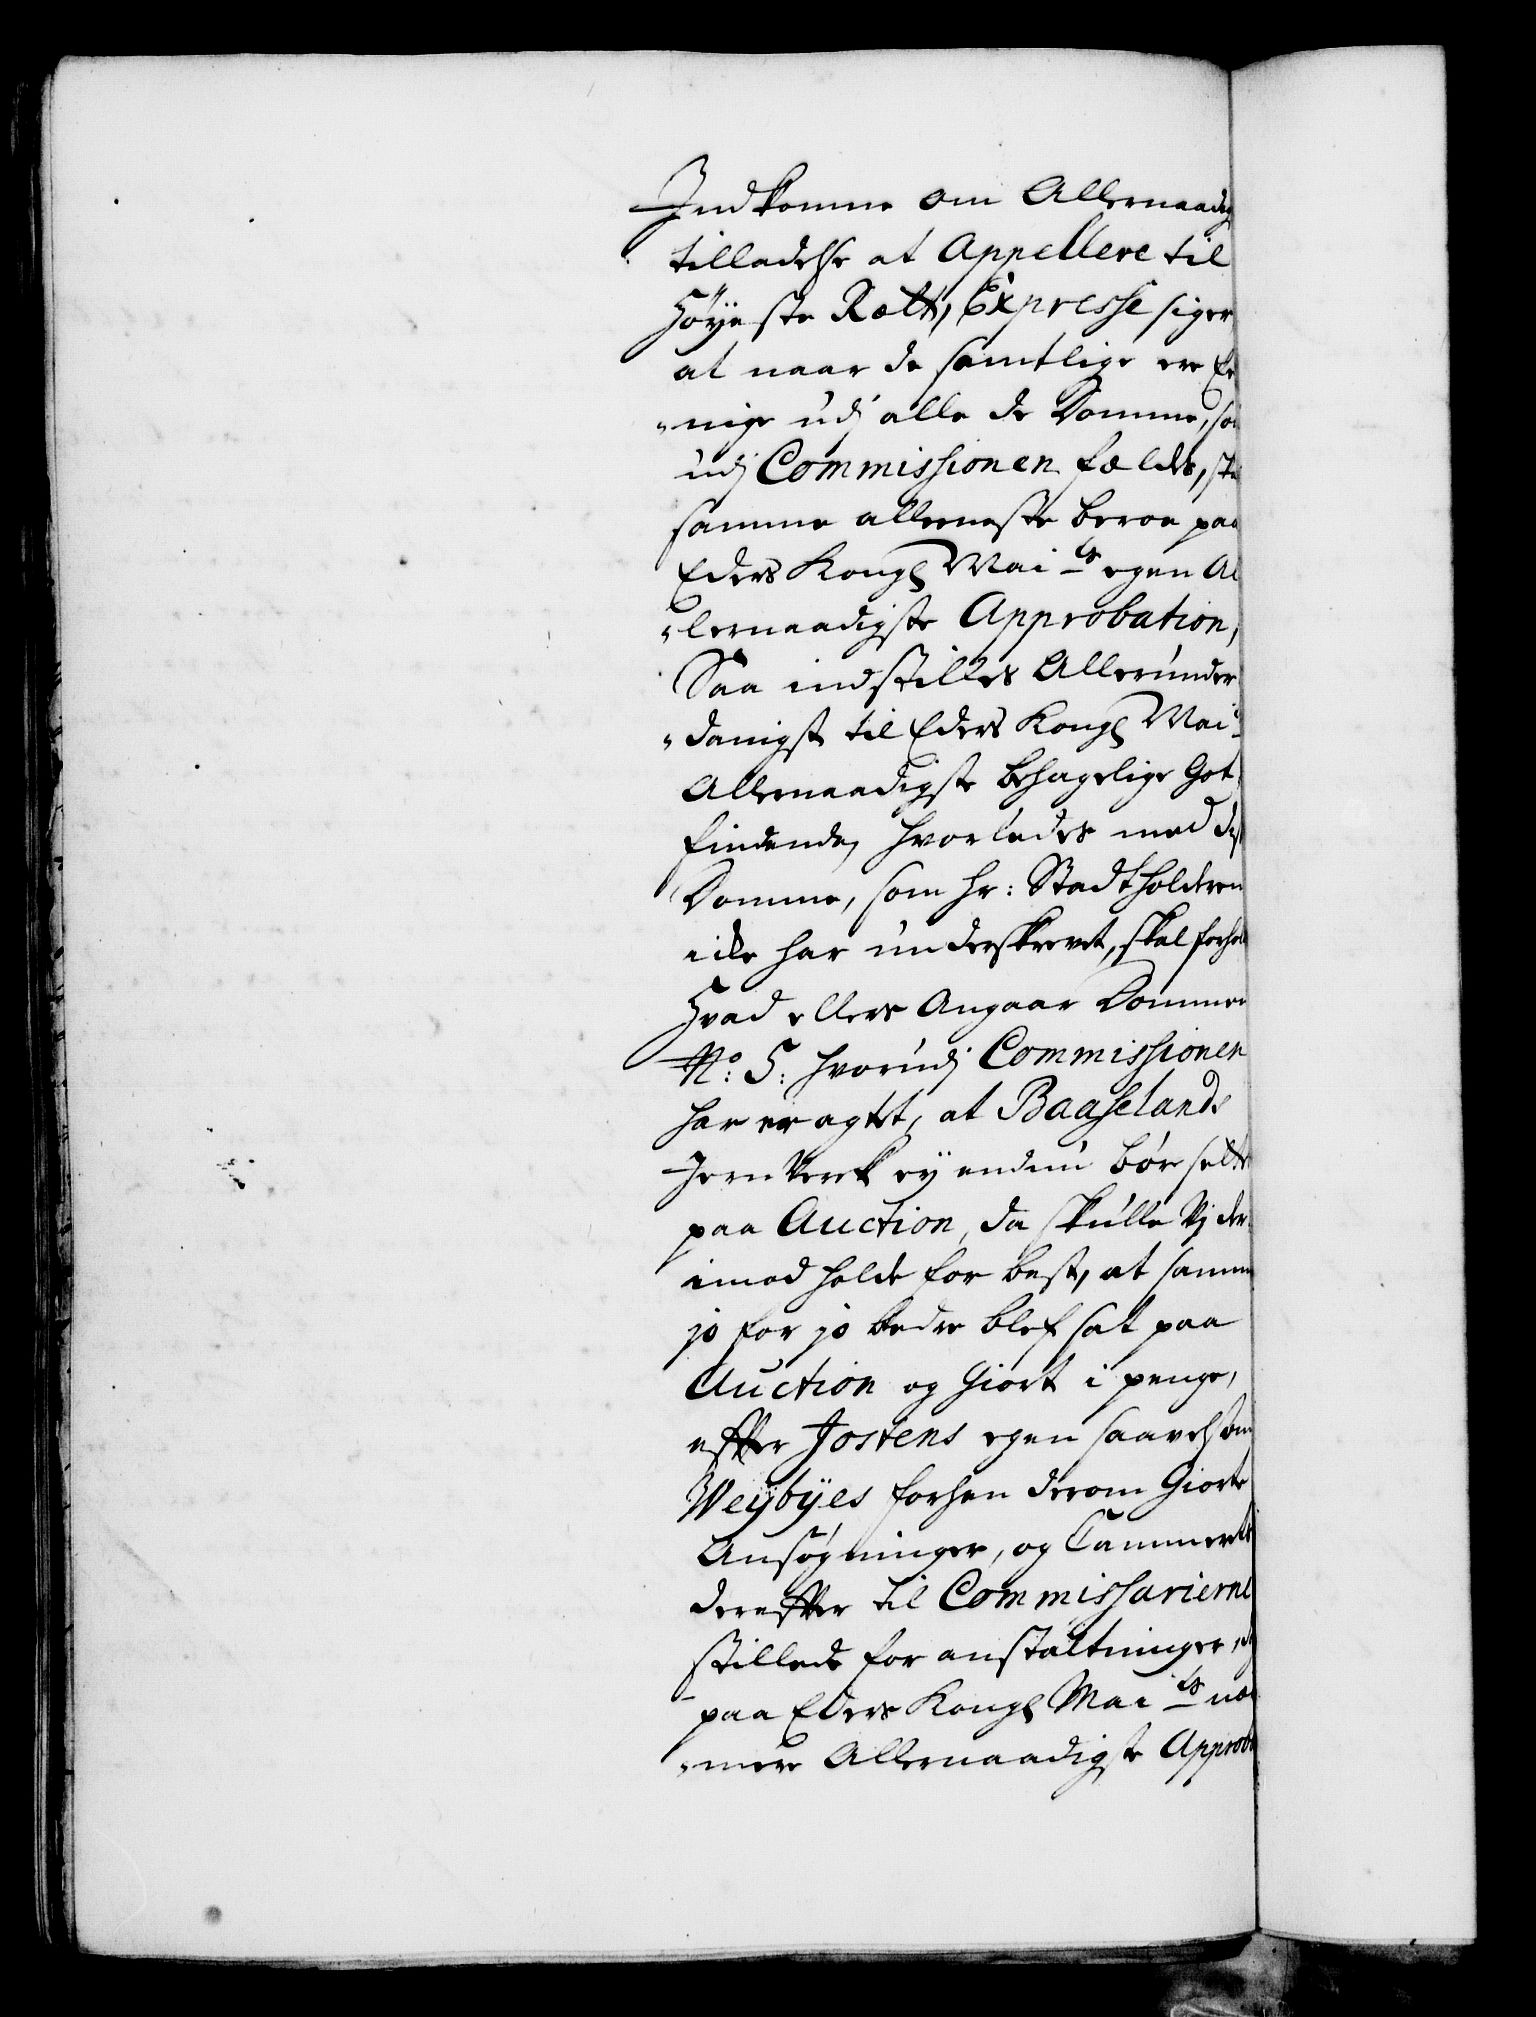 Indkomme om Allernaadig
tilladelse at Appellere til
Høyeste Rett, Expresse siger
at naar de samtlige ere Ee
"nige udj alle de Domme, so
udj Commissionen fældes, sk
samme alleeneste beroe paa
Eders Kongl Mai ts egen Al
"lernaadigste Approbation,
Saa indstilles Allerunder
"danigst til Eders Kongl Mai
Allernaadigste behagelige Got
findende, hvorledes med de
Domme, som hr: Stadtholderen
icke har underskrevet, skal forhol
Hvad ellers Angaar Dommen
No: 5: hvorudj Commissionen
har eragtet, at Baaselands
JernVerk ey endnu bør sette
paa Auction, da skulle Vj der
imod holde for best, at samme
jo før jo bedre blef sat paa
Auction og Giort i penge,
effter Jostens egen saavelsom
Weybyes forhen derom Giorte
Ansøgninger, og Cammerets
dereffter til Commissarierne
stillede for anstaltninger,
paa Eders Kongl Mai ts næ
"mere Allernaadigste Approba